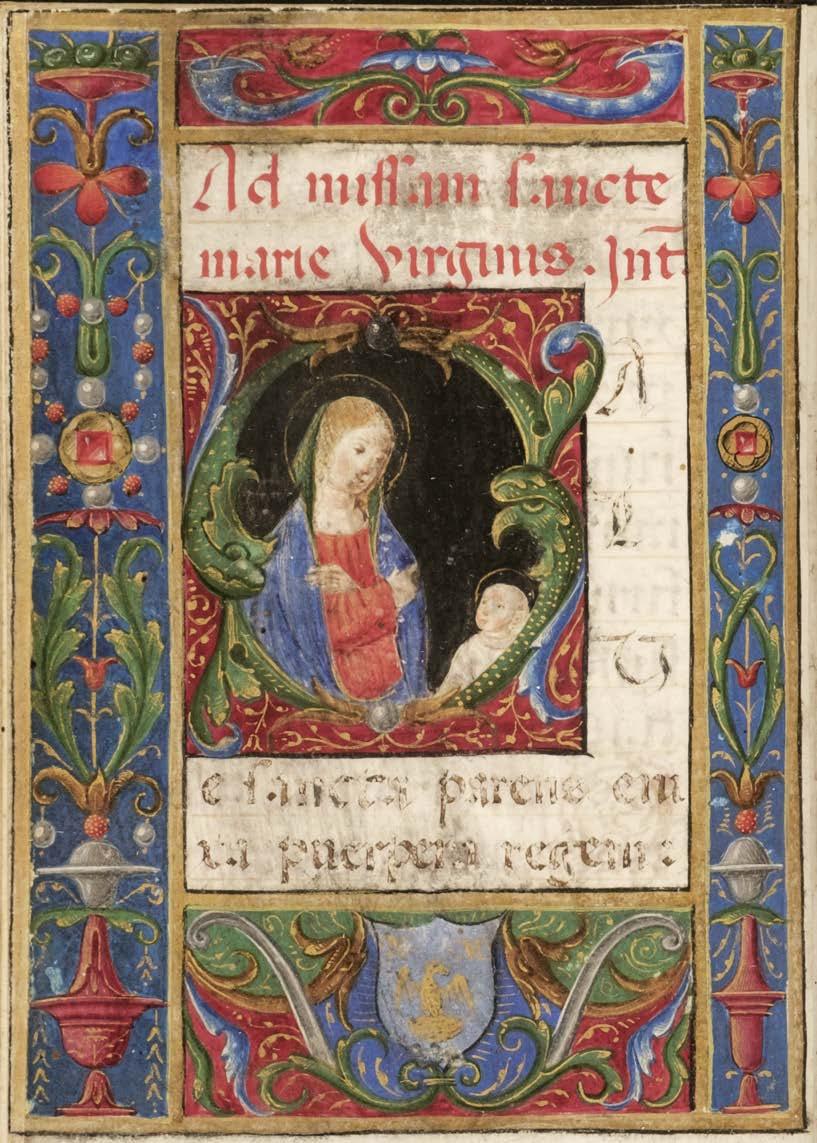 Ad missam sancte
marie Virginis. Int̄.
S
A
L
V
e sancta parens eni
xa puerpera regem :